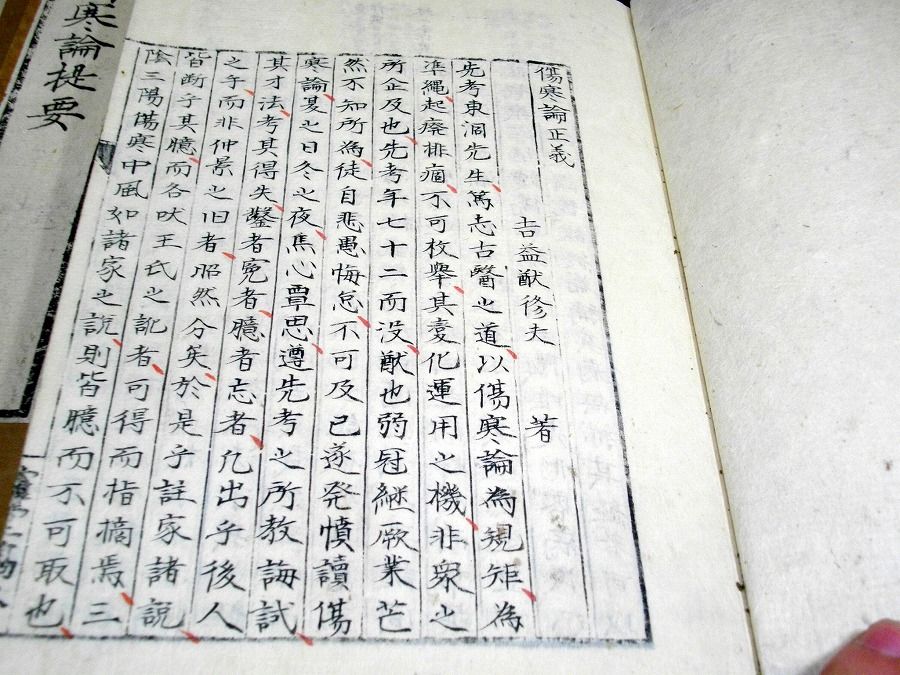 傷寒論正義
吉益猷修夫 著
先考東洞先生篤志古醫之道以傷寒論為規矩為
準繩起癈排痼不可枚舉其變化運用之機非衆之
所企及也先考年七十二而没猷也弱冠継厥業芒
然不知所為徒自悲愚悔怠不可及已遂発憤讀傷
寒論夏之日冬之夜焦心覃思遵先考之所教誨試
其才法考其得失鑿者冤者臆者忘者凡出乎後人
之手而非仲景之旧者昭然分矣於是乎註家諸説
皆断乎其臆而各吠王氏之訛者可得而指摘焉三
陰三陽傷寒中風如諸家之説則皆臆而不可取也
寒論提要